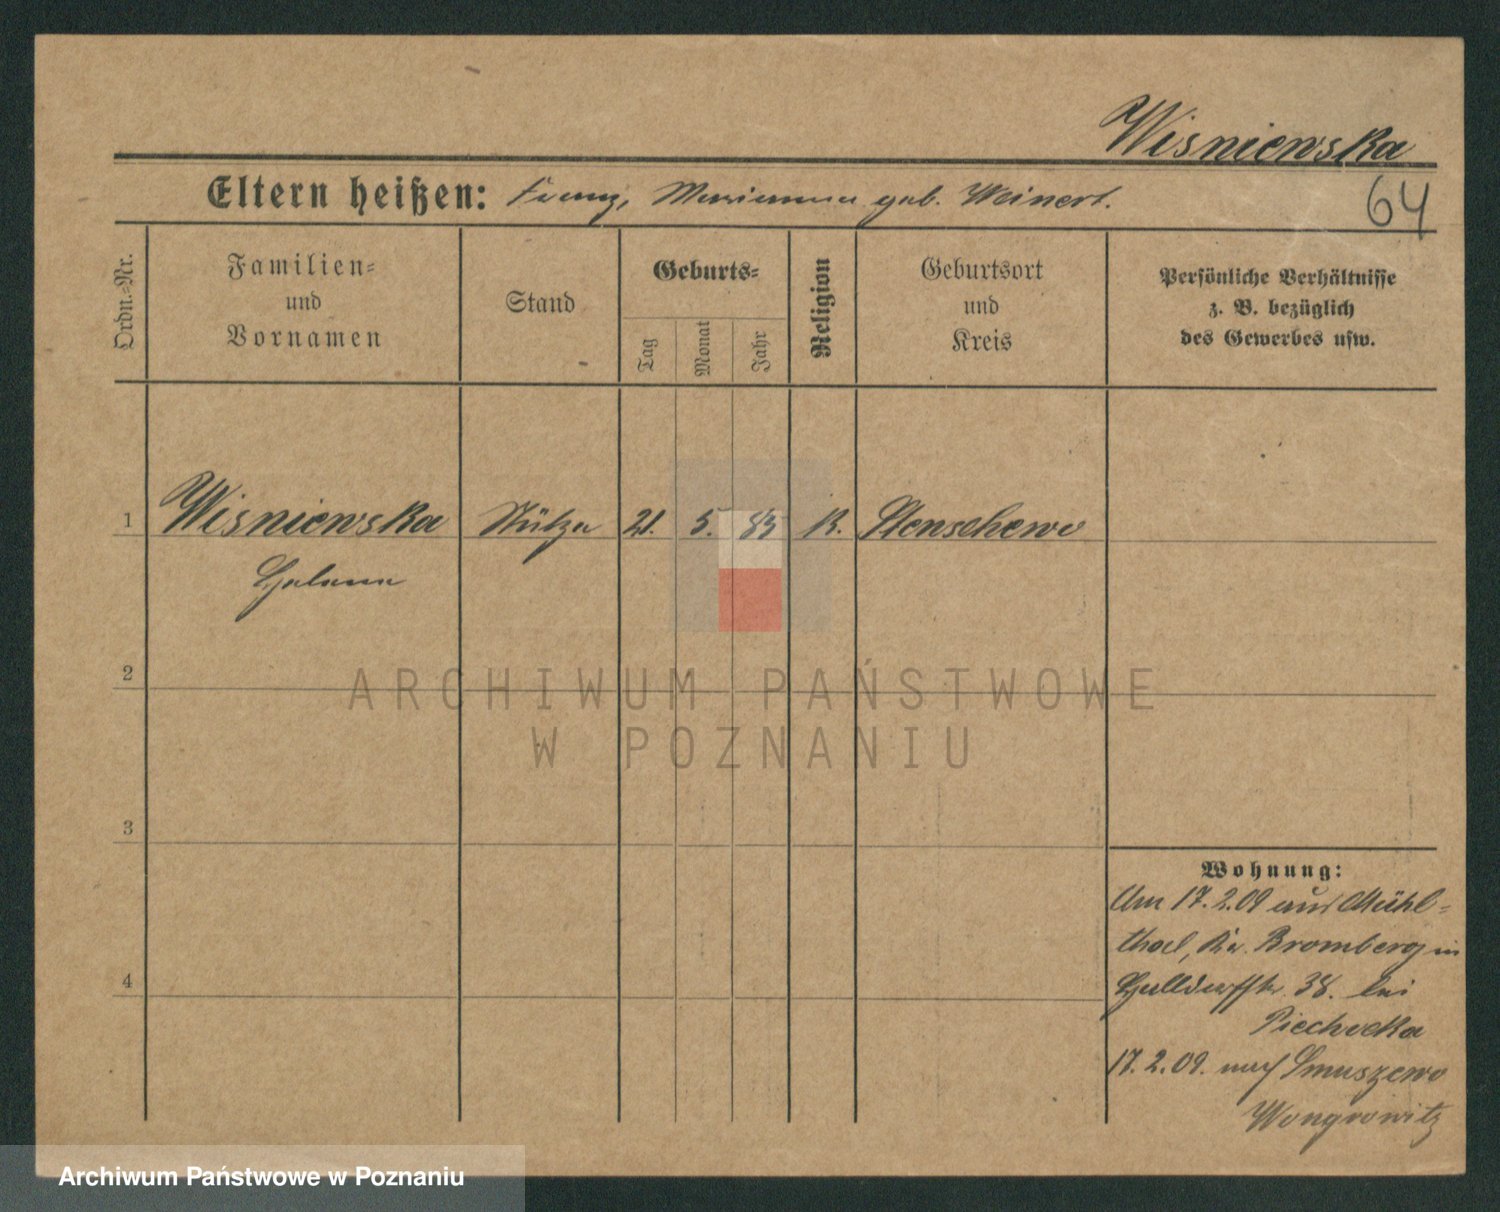 Wisniewska
Eltern heißen: Franz, Marianna geb. Weinert.
64
Ordn.-Nr.
Familien-
und
Vornamen
Stand
Geburts-
Tag
Monat
Jahr
Religion
Geburtsort
und
Kreis
Persönliche Verhältnisse
z. B. bezüglich
des Gewerbes usw.
1 Wisniewska Stütze 21. 5. 85 K. Stenschewo
Helena
ARCHIWUM PAŃSTWOWE
W POZNANIU
2
3
4
Wohnung:
Am 17.2.09 aus Mühl-
thal, Kr. Bromberg in
38. bei
17.2.09. nach Smuszewo
Wongrowitz
Archiwum Państwowe w Poznaniu